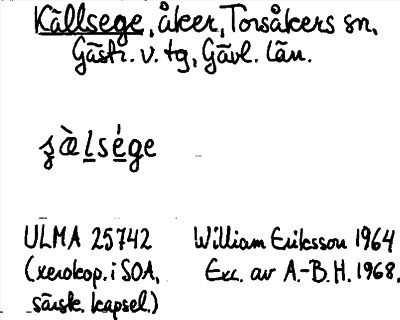 Källsege, åker, Torsåkers sn,
Gästr. v. tg, Gävl. län.
ʂæ̀l̠sé̠ge
ULMA 25742 William Eriksson 1964
(xerokop. i SOA, Exc. av A.-B.H. 1968.
särsk. kapsel.)